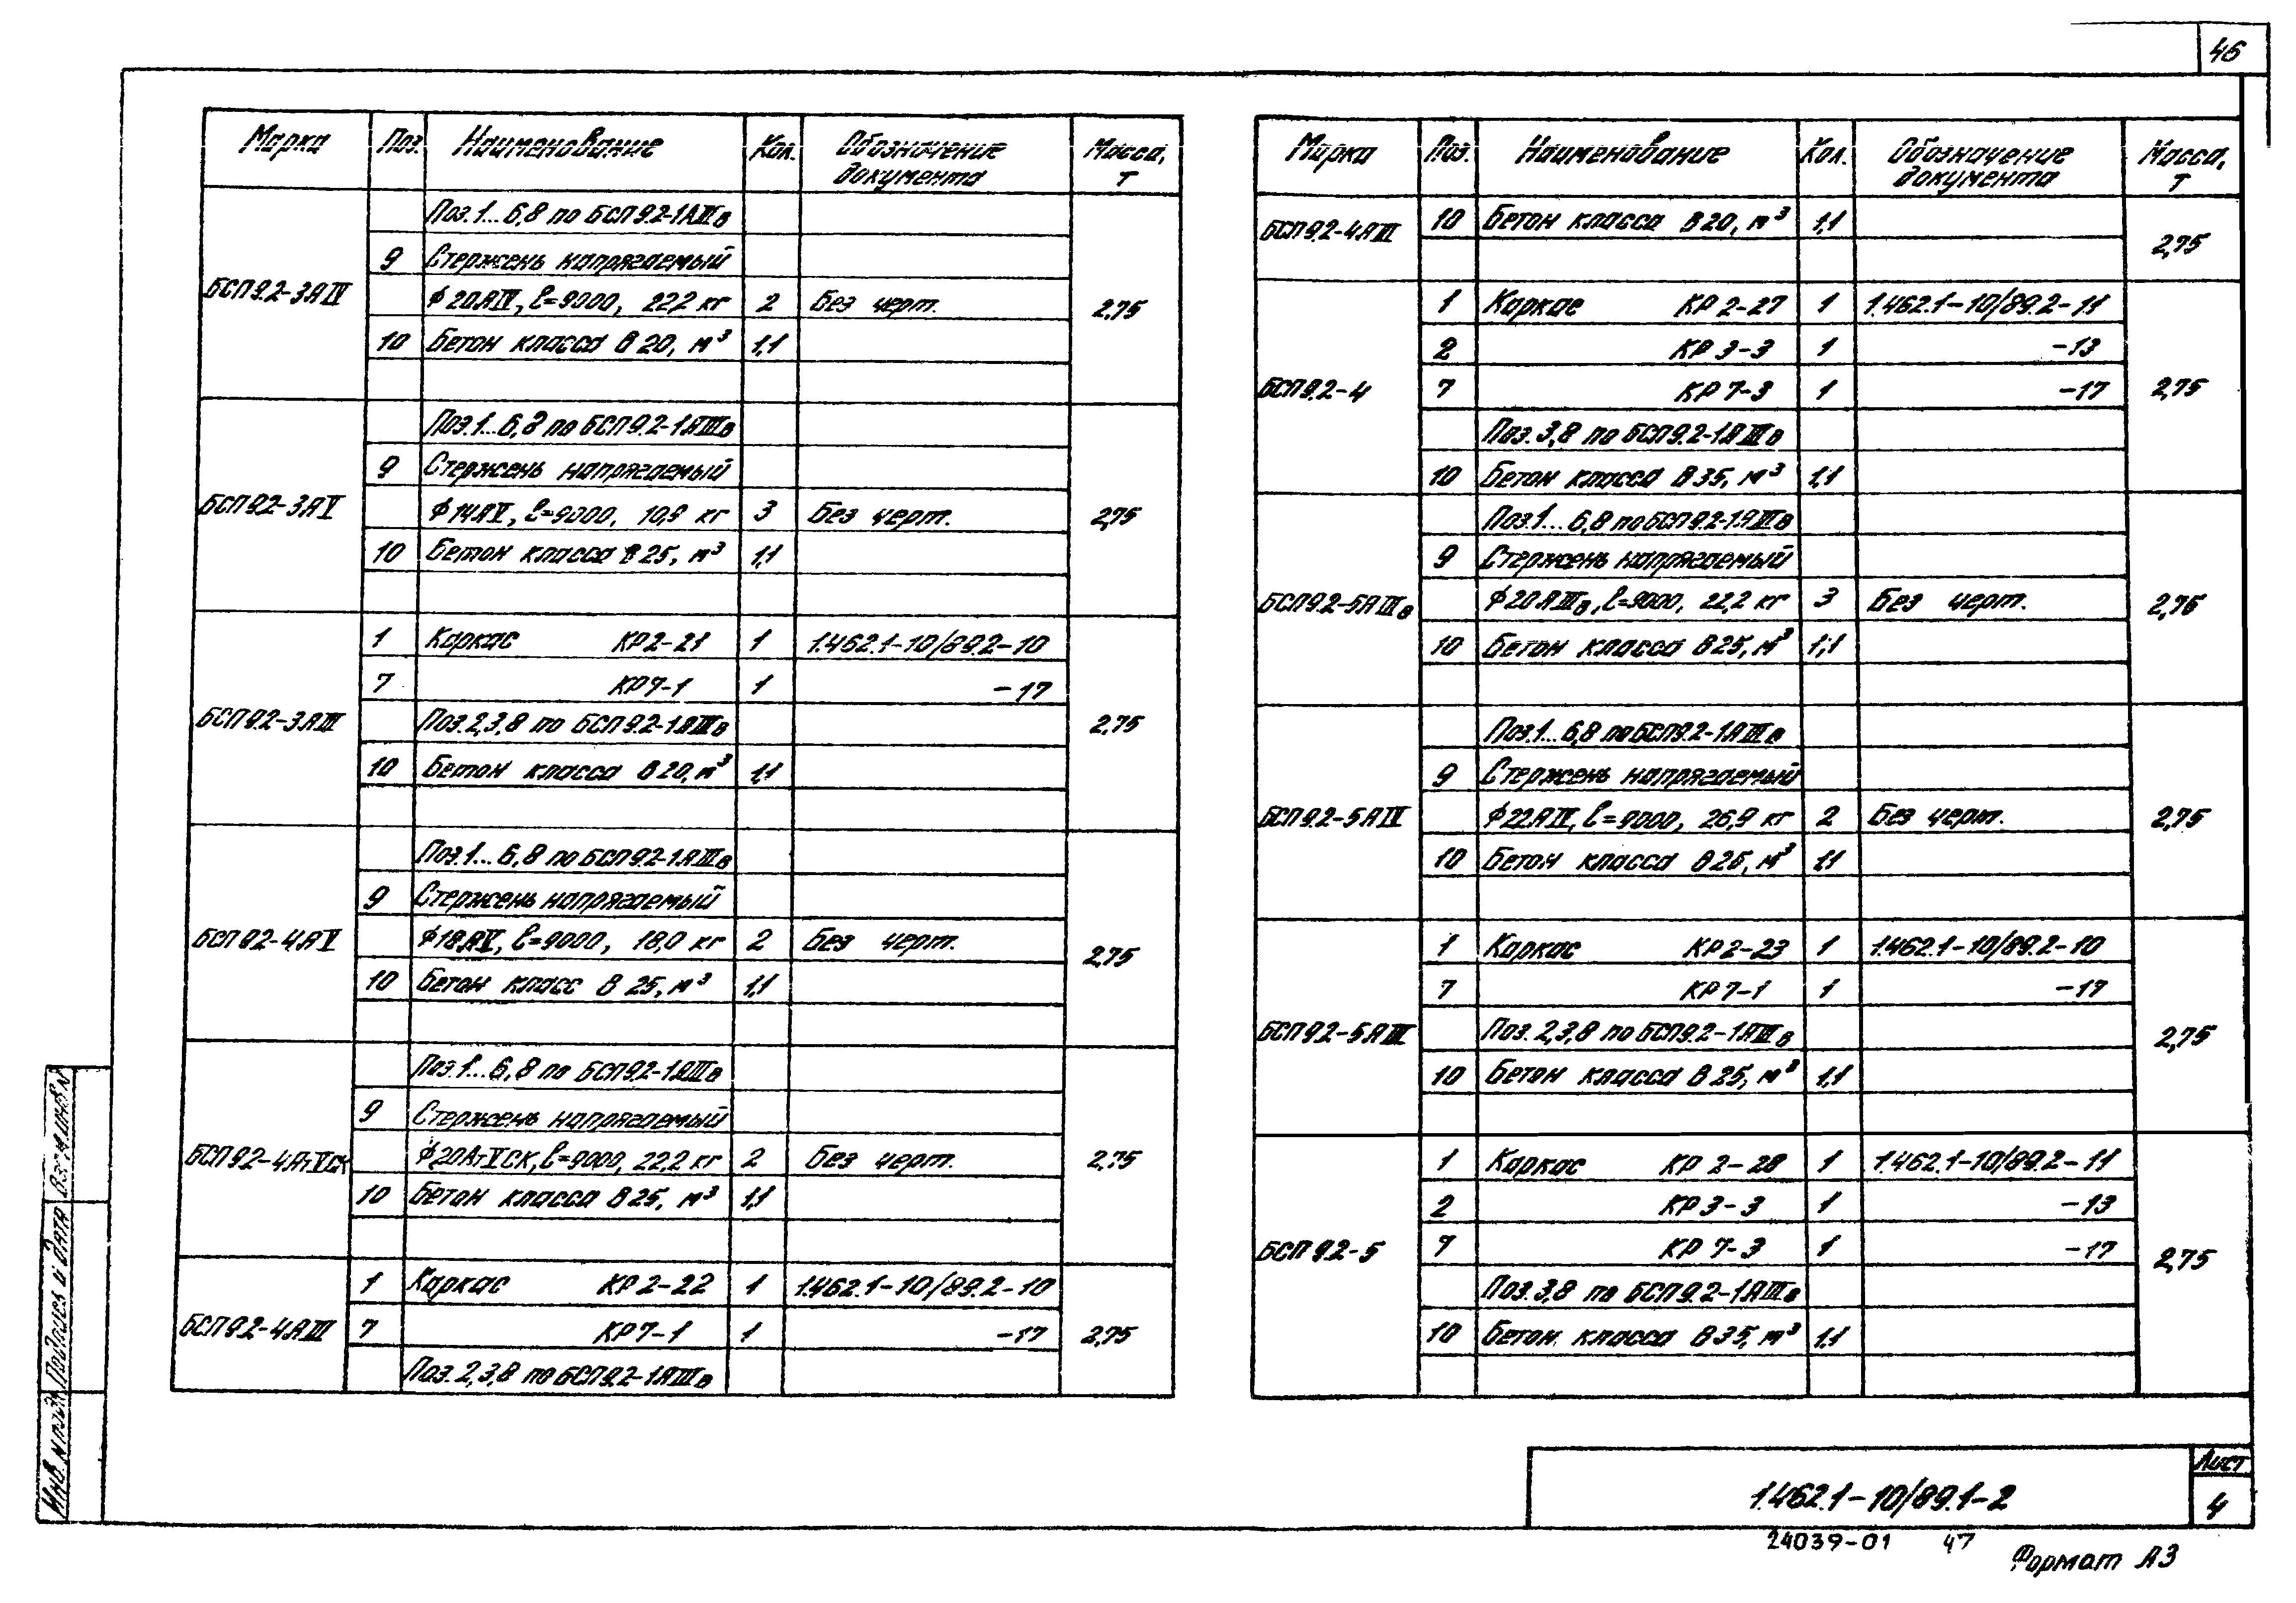 46
Марка Поз. Наименование Кол. Обозначение документа Масса, т
Поз.1...6,8 по БСП9.2-1АIIIв
9 Стержень напрягаемый
БСП9.2-3АIV ϕ20АIV, ℓ=9000, 22,2 кг 2 Без черт. 2,75
10 Бетон класса В20, м³ 1,1
Поз.1...6,8 по БСП9.2-1АIIIв
9 Стержень напрягаемый
БСП9.2-3АV ϕ14АV, ℓ=9000, 10,9 кг 3 Без черт. 2,75
10 Бетон класса В25, м³ 1,1
1 Каркас КР2-21 1 1.462.1-10/89.2-10
7 КР7-1 1 -17
БСП9.2-3АIII Поз.2,3,8 по БСП9.2-1АIIIв 2,75
10 Бетон класса В20, м³ 1,1
Поз.1...6,8 по БСП9.2-1АIIIв
9 Стержень напрягаемый
БСП9.2-4АV ϕ18АV, ℓ=9000, 18,0 кг 2 Без черт. 2,75
10 Бетон класс В25, м³ 1,1
Поз.1...6,8 по БСП9.2-1АIIIв
9 Стержень напрягаемый
БСП9.2-4АтVск ϕ20АтVСК, ℓ=9000, 22,2 кг 2 Без черт. 2,75
10 Бетон класса В25, м³ 1,1
1 Каркас КР2-22 1 1.462.1-10/89.2-10
БСП9.2-4АIII 7 КР7-1 1 -17 2,75
Поз.2,3,8 по БСП9.2-1АIIIв
Марка Поз. Наименование Кол. Обозначение документа Масса, т
БСП9.2-4АIII 10 Бетон класса В20, м³ 1,1 2,75
1 Каркас КР2-27 1 1.462.1-10/89.2-11
2 КР3-3 1 -13
БСП9.2-4 7 КР7-3 1 -17 2,75
Поз.3,8 по БСП9.2-1АIIIв
10 Бетон класса В35, м³ 1,1
Поз.1...6,8 по БСП9.2-1АIIIв
9 Стержень напрягаемый
БСП9.2-5АIIIв ϕ20АIIIв, ℓ=9000, 22,2 кг 3 Без черт. 2,75
10 Бетон класса В25, м³ 1,1
Поз.1...6,8 по БСП9.2-1АIIIв
9 Стержень напрягаемый
БСП9.2-5АIV ϕ22АIV, ℓ=9000, 26,9 кг 2 Без черт. 2,75
10 Бетон класса В25, м³ 1,1
1 Каркас КР2-23 1 1.462.1-10/89.2-10
7 КР7-1 1 -17
БСП9.2-5АIII Поз.2,3,8 по БСП9.2-1АIIIв 2,75
10 Бетон класса В25, м³ 1,1
1 Каркас КР2-28 1 1.462.1-10/89.2-11
2 КР3-3 1 -13
БСП9.2-5 7 КР7-3 1 -17 2,75
Поз.3,8 по БСП9.2-1АIIIв
10 Бетон класса В35, м³ 1,1
Инв. N подл. Подпись и дата Взам. инв. N
1.462.1-10/89.1-2
Лист
4
24039-01 47
Формат А3